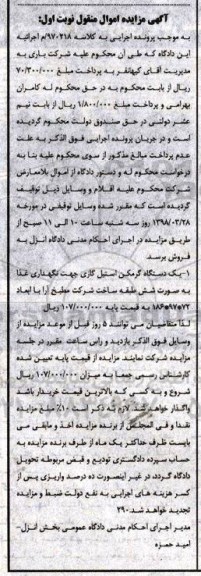 آگهی مزایده اموال منقول نوبت اول:
به موجب پرونده اجرایی به کلاسه ۹۷۰۲۱۸/م اجرائیه
این دادگاه که طی آن محکوم علیه شرکت یاری به
مدیریت آقای کیهانفر به پرداخت مبلغ ۷۰/۳۰۰/۰۰۰
ریال از بابت محکوم به در حق محکوم له کامران
بهرامی و پرداخت مبلغ ۱/۸۰۰/۰۰۰ ریال از بابت نیم
عشر دولتی در حق صندوق دولت محکوم گردیده
است و در جریان پرونده اجرایی فوق الذکر به علت
عدم پرداخت مبالغ مذکور از سوی محکوم علیه بنا به
درخواست محکوم له و دستور دادگاه از اموال بلامعارض
شرکت محکوم علیه اقلام و وسایل ذیل توقیف
گردیده است که مقرر شده وسایل توقیفی در مورخه
۱۳۹۸/۰۳/۲۸ روز سه شنبه ساعت ۱۰ الی ۱۱ صبح از
طریق مزایده در اجرای احکام مدنی دادگاه انزل به
فروش برسد.
۱-یک دستگاه گرمکن استیل گازی جهت نگهداری غذا
به صورت شش طبقه ساخت شرکت مطبخ آرا با ابعاد
۷۳*۹۷*۱۸۶ به قیمت پایه ۱۰۷/۰۰۰/۰۰۰ ریال
لذا متقاضیان می توانند ۵ روز قبل از موعد مزایده از
وسایل فوق الذکر بازدید و راس ساعت مقرر در جلسه
مزایده شرکت نمایند. مزایده از قیمت پایه تعیین شده
کارشناس رسمی جمعا به میزان ۱۰۷/۰۰۰/۰۰۰ ریال
شروع و به کسی که بالاترین قیمت خریدار باشد
واگذار خواهد شد. لازم به ذکر است ۱۰٪ مبلغ مزایده
نقدا و فی المجلس از برنده مزایده اخذ و مابقی می
بایست ظرف حداکثر یک ماه از طرف برنده مزایده به
حساب سپرده دادگستری تودیع و قبض مربوطه تحویل
دادگاه گردد، در غیر اینصورت ده درصد واریزی پس از
کسر هزینه های اجرایی به نفع دولت ضبط و مزایده
تجدید خواهد شد.۲۹۰
مدیر اجرای احکام مدنی دادگاه عمومی بخش انزل-
امید حمزه